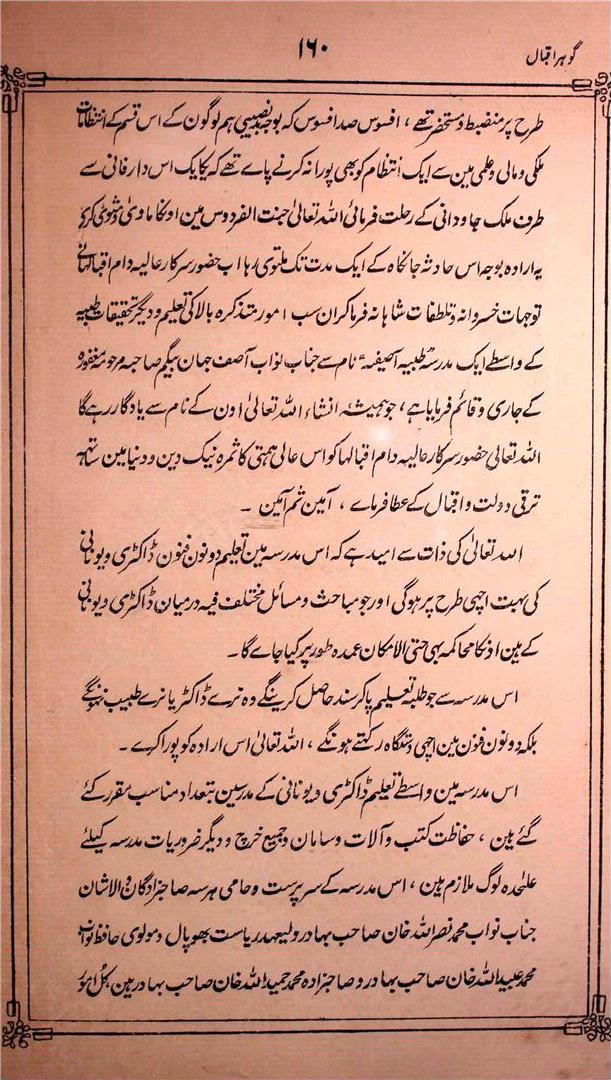 گوہر اقبال
۱۶۰
طرح پر منضبط و مستحضر تھے ، افسوس صد افسوس کہ بوجہ بدنصیبی ہم لوگون کے اس قسم کے انتظامات
ملکی و مالی و علمی مین سے ایک انتظام کو بھی پورا نہ کرنے پاے تھے کہ یکایک اس دار فانی سے
طرف ملک جاودانی کے رحلت فرمائی اللہ تعالیٰ جنت الفردوس مین اونکا ماویٰ و مثویٰ کری
یہ ارادہ بوجہ اس حادثہ جانکاہ کے ایک مدت تک ملتوی رہا اب حضور سرکار عالیہ دام اقبالہا نے
توجہات خسروانہ و تلطفات شاہانہ فرما کر ان سب امور متذکرہ بالا کی تعلیم و دیگر تحقیقات طبیہ
کے واسطے ایک مدرسہ طبیہ آصفیہ نام سے جناب نواب آصف جہان بیگم صاحبہ مرحومہ مغفورہ
کے جاری و قائم فرمایا ہے ، جو ہمیشہ انشاء اللہ تعالیٰ اون کے نام سے یادگار رہے گا
اللہ تعالیٰ حضور سرکار عالیہ دام اقبالہا کو اس عالی ہمتی کا ثمرہ نیک دین و دنیا مین ساتہہ
ترقی دولت و اقبال کے عطا فرماے ، آمین ثم آمین ۔
اللہ تعالیٰ کی ذات سے امید ہے کہ اس مدرسہ مین تعلیم دونون فنون ڈاکٹری و یونانی
کی بہت اچہی طرح پر ہوگی اور جو مباحث و مسائل مختلف فیہ درمیان ڈاکٹری و یونانی
کے مین انکا محاکمہ بہی حتی الامکان عمدہ طور پر کیا جاے گا ۔
اس مدرسہ سے جو طلبہ تعلیم پاکر سند حاصل کرینگے وہ نرے ڈاکٹر یا نرے طبیب نہونگے
بلکہ دونون فنون مین اچہی دستگاہ رکہتے ہونگے ، اللہ تعالیٰ اس ارادہ کو پورا کرے ۔
اس مدرسہ مین واسطے تعلیم ڈاکٹری و یونانی کے مدرسین بتعداد مناسب مقرر کئے
گئے ہین ، حفاظت کتب و آلات و سامان و جمیع خرچ و دیگر ضروریات مدرسہ کیلئے
علیٰحدہ لوگ ملازم ہین ، اس مدرسہ کے سرپرست و حامی ہر سہ صاحبزادگان والاشان
جناب نواب محمد نصر اللہ خان صاحب بہادر ولیعہد ریاست بھوپال و مولوی حافظ نواب
محمد عبید اللہ خان صاحب بہادر و صاحبزادہ محمد حمید اللہ خان صاحب بہادر ہین ، کل امور